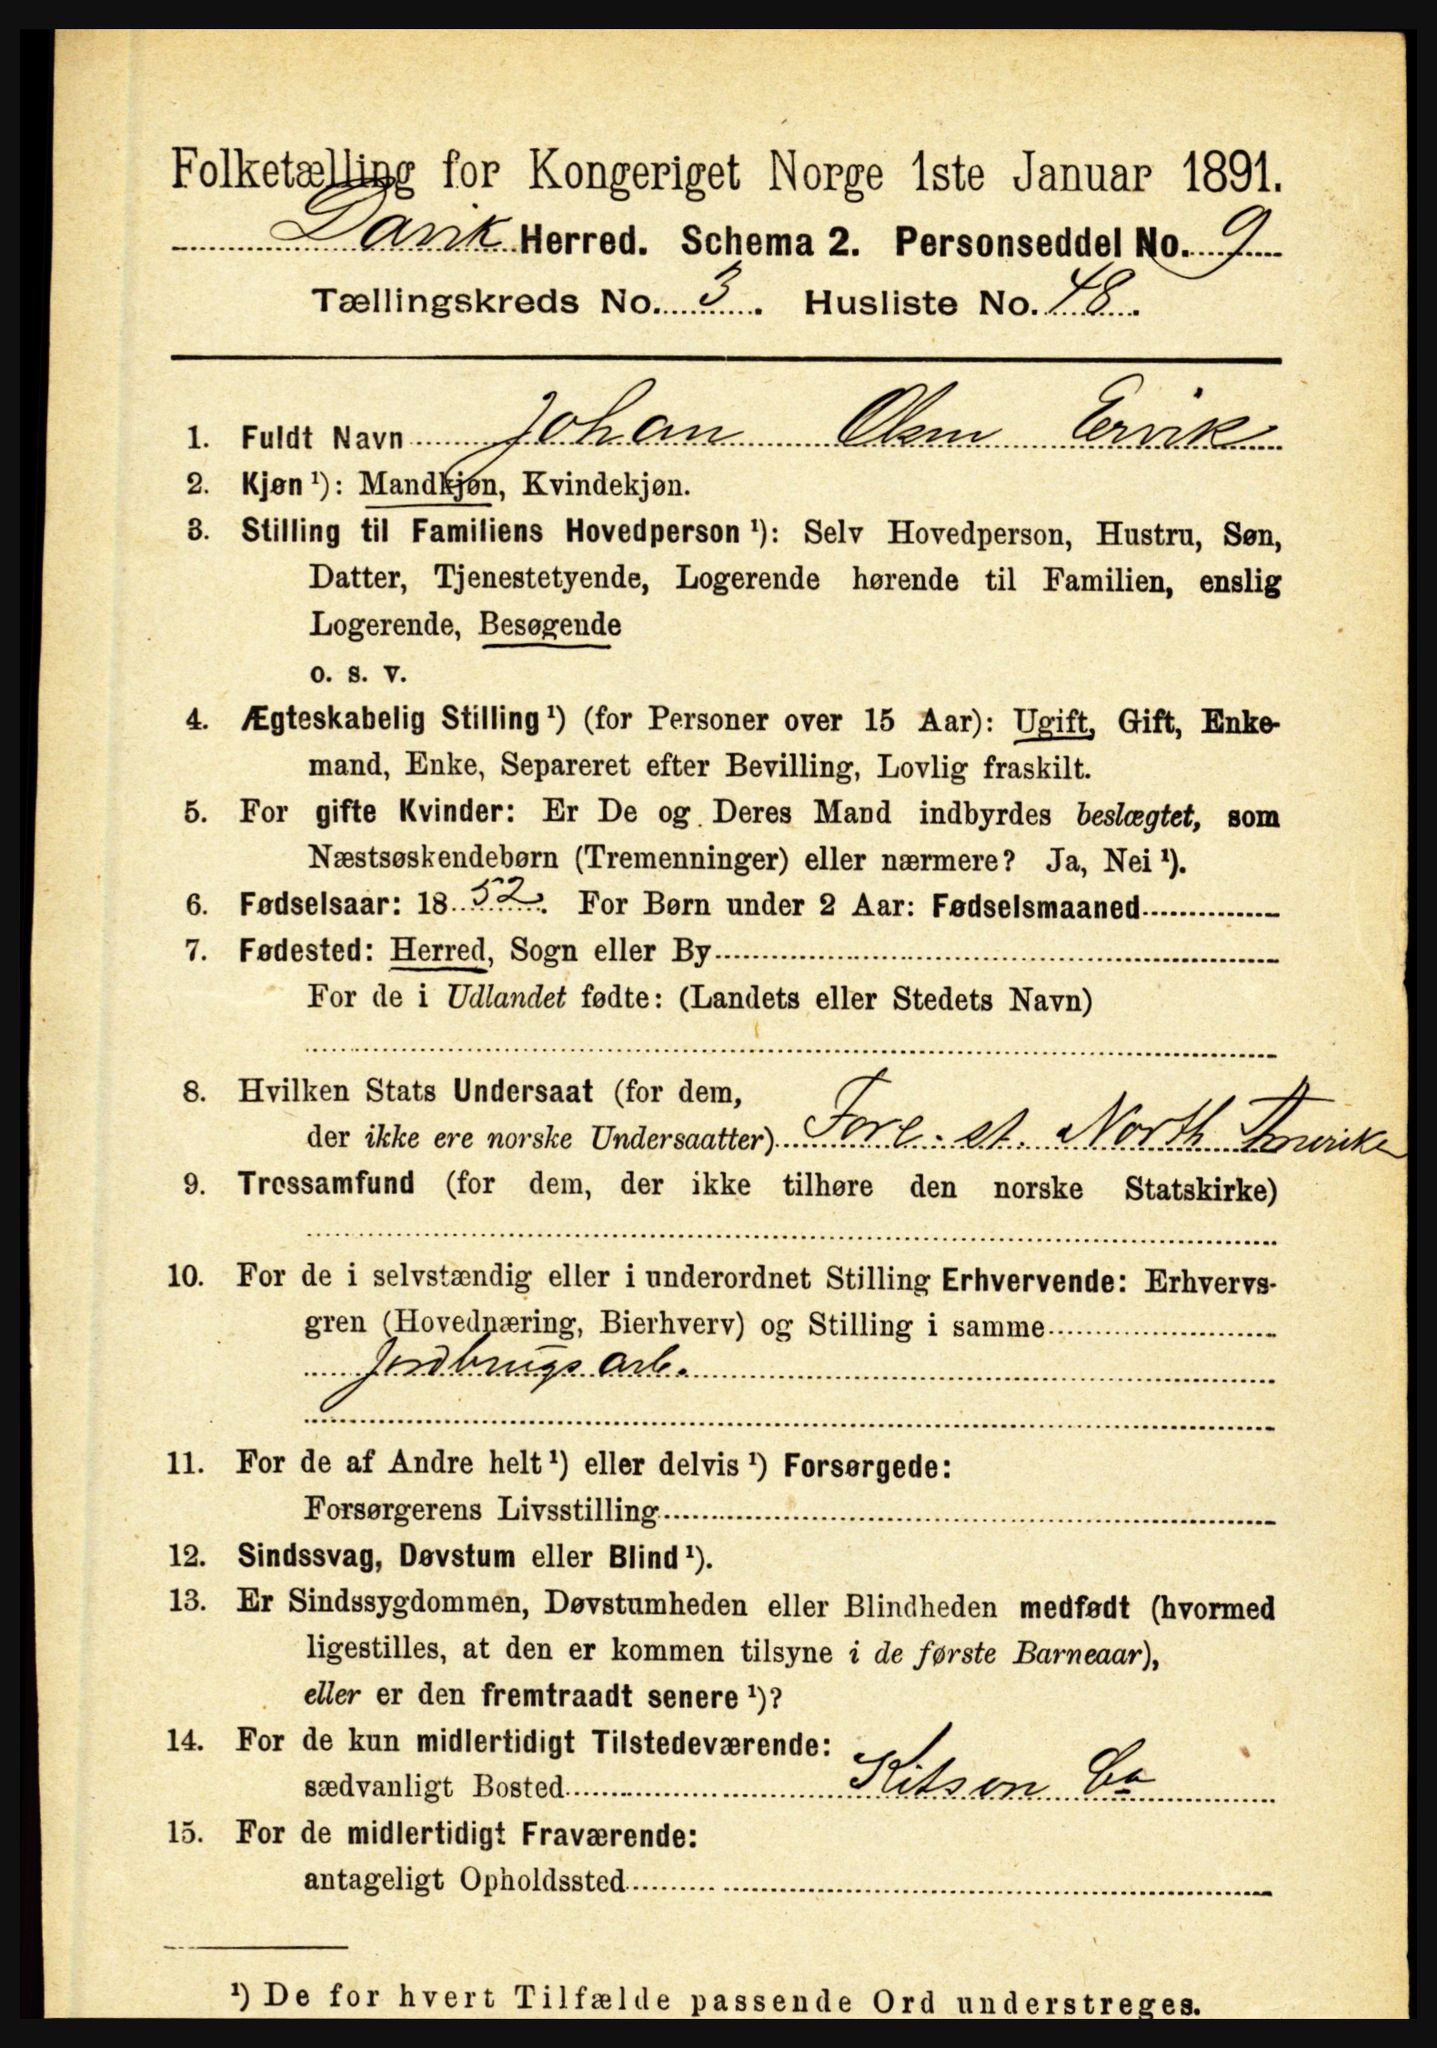 Folketælling for Kongeriget Norge 1ste Januar 1891.
Davik Herred. Schema 2. Personseddel No. 9
Tællingskreds No. 3. Husliste No. 48.
1. Fuldt Navn Johan Olsen Ervik
2. Kjøn ¹): Mandkjøn, Kvindekjøn.
3. Stilling til Familiens Hovedperson ¹): Selv Hovedperson, Hustru, Søn,
Datter, Tjenestetyende, Logerende hørende til Familien, enslig
Logerende, Besøgende
o. s. v.
4. Ægteskabelig Stilling ¹) (for Personer over 15 Aar): Ugift, Gift, Enke-
mand, Enke, Separeret efter Bevilling, Lovlig fraskilt.
5. For gifte Kvinder: Er De og Deres Mand indbyrdes beslægtet, som
Næstsøskendebørn (Tremenninger) eller nærmere? Ja, Nei ¹).
6. Fødselsaar: 1852. For Børn under 2 Aar: Fødselsmaaned
7. Fødested: Herred, Sogn eller By
For de i Udlandet fødte: (Landets eller Stedets Navn)
8. Hvilken Stats Undersaat (for dem,
der ikke ere norske Undersaatter) Fore. st. North Amerika
9. Trossamfund (for dem, der ikke tilhøre den norske Statskirke)
10. For de i selvstændig eller i underordnet Stilling Erhvervende: Erhvervs-
gren (Hovednæring, Bierhverv) og Stilling i samme
Jordbrugsarb.
11. For de af Andre helt ¹) eller delvis ¹) Forsørgede:
Forsørgerens Livsstilling
12. Sindssvag, Døvstum eller Blind ¹).
13. Er Sindssygdommen, Døvstumheden eller Blindheden medfødt (hvormed
ligestilles, at den er kommen tilsyne i de første Barneaar),
eller er den fremtraadt senere ¹)?
14. For de kun midlertidigt Tilstedeværende:
sædvanligt Bosted Kitson Co
15. For de midlertidigt Fraværende:
antageligt Opholdssted
¹) De for hvert Tilfælde passende Ord understreges.